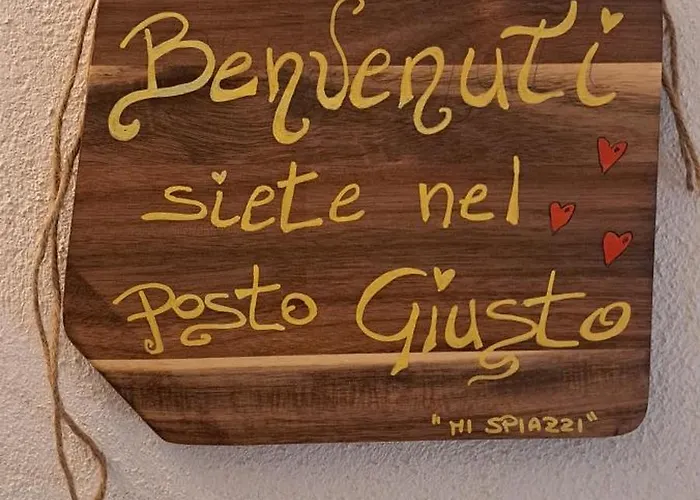 Benvenuti
siete nel
Posto Giusto
"MI SPIAZZI"